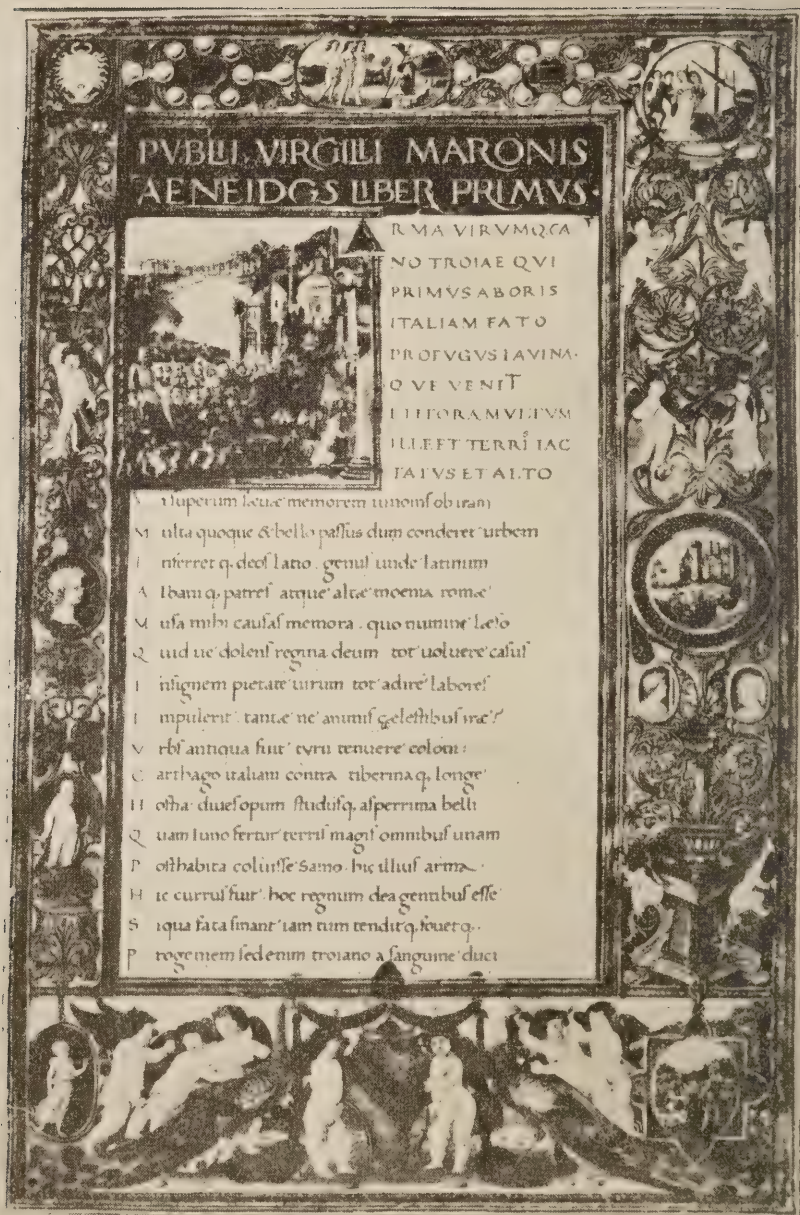 PVBLII VIRGILII MARONIS
AENEIDOS LIBER PRIMVS·
ARMA VIRVMQ CA
NO TROIAE QVI
PRIMVS AB ORIS
ITALIAM FATO
PROFVGVS LAVINA·
QVE VENIT
LITTORA MVLTVM
ILLE ET TERRIS IAC
TATVS ET ALTO
V i superum sæuæ memorem iunonis ob iram
M ulta quoque & bello passus dum conderet urbem
I nferret q. deos latio. genus unde latinum
A lbani q. patres atque altæ moenia romæ
M usa mihi causas memora. quo numine læso
Q uid ue dolens regina deum tot uoluere casus
I nsignem pietate uirum tot adire labores
I mpulerit. tantæ ne animis cælestibus iræ?
V rbs antiqua fuit tyrii tenuere coloni:
C arthago italiam contra tiberina q. longe
H ostia. diues opum studiisq. asperrima belli
Q uam Iuno fertur terris magis omnibus unam
P osthabita coluisse Samo. hic illius arma.
H ic currus fuit. hoc regnum dea gentibus esse
S iqua fata sinant iam tum tendit q. fouet q.
P rogeniem sed enim troiano a sanguine duci